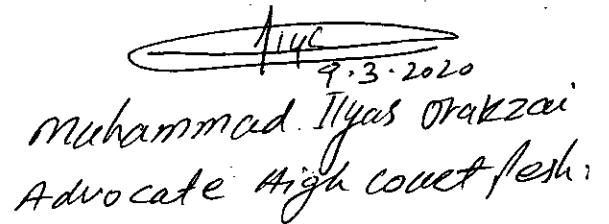 Ilyas
9.3.2020
Muhammad Ilyas Orakzai
Advocate High Court Pesh: